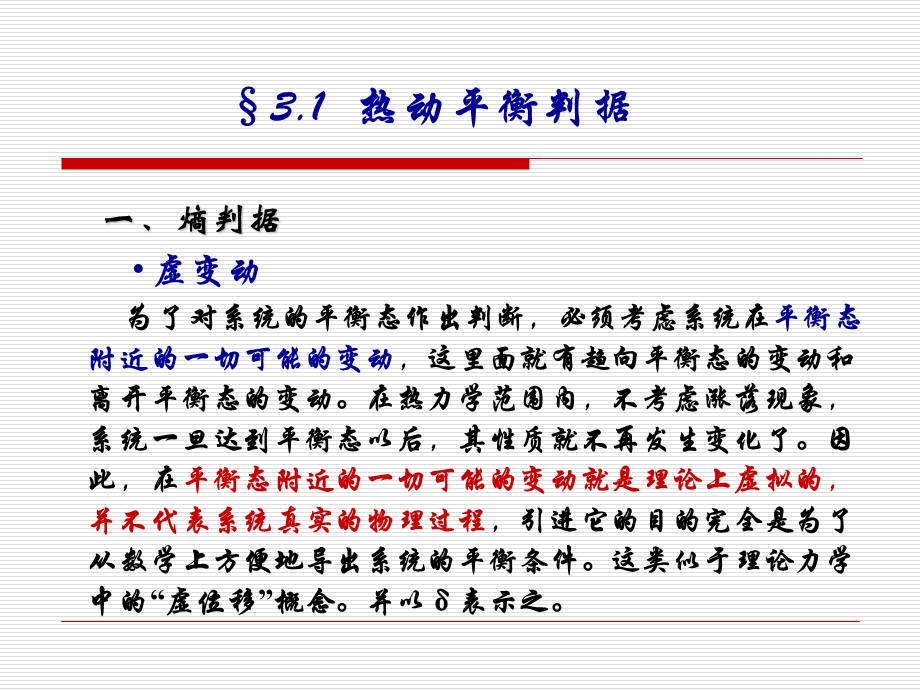 §3.1 热动平衡判据
一、熵判据
•虚变动
为了对系统的平衡态作出判断，必须考虑系统在平衡态
附近的一切可能的变动，这里面就有趋向平衡态的变动和
离开平衡态的变动。在热力学范围内，不考虑涨落现象，
系统一旦达到平衡态以后，其性质就不再发生变化了。因
此，在平衡态附近的一切可能的变动就是理论上虚拟的，
并不代表系统真实的物理过程，引进它的目的完全是为了
从数学上方便地导出系统的平衡条件。这类似于理论力学
中的“虚位移”概念。并以δ表示之。